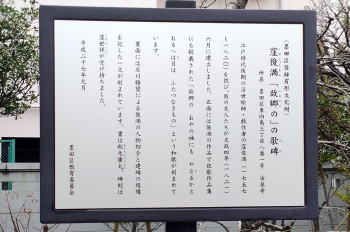 (墨田区登録有形文化財)
窪俊満「故郷の」の歌碑
所在 墨田区東向島三丁目八番一号 法泉寺
江戸時代後期の浮世絵師・戯作者の窪俊満(一七五七
〜一八二〇)を偲び、彼の友人たちが文政四年(一八二一)
六月に建立しました。正面には俊満の作品で狂歌作品集
にも掲載された「故郷の おやの袖にも やどるかと
おもへは月は ふたつなきもの」という和歌が刻まれて
います。
裏面には石川雅望による俊満の人物紹介と建碑の経緯
を記した一文が刻まれています。書は
窪世祥が受け持ちました。
平成二十七年九月
墨田区教育委員会